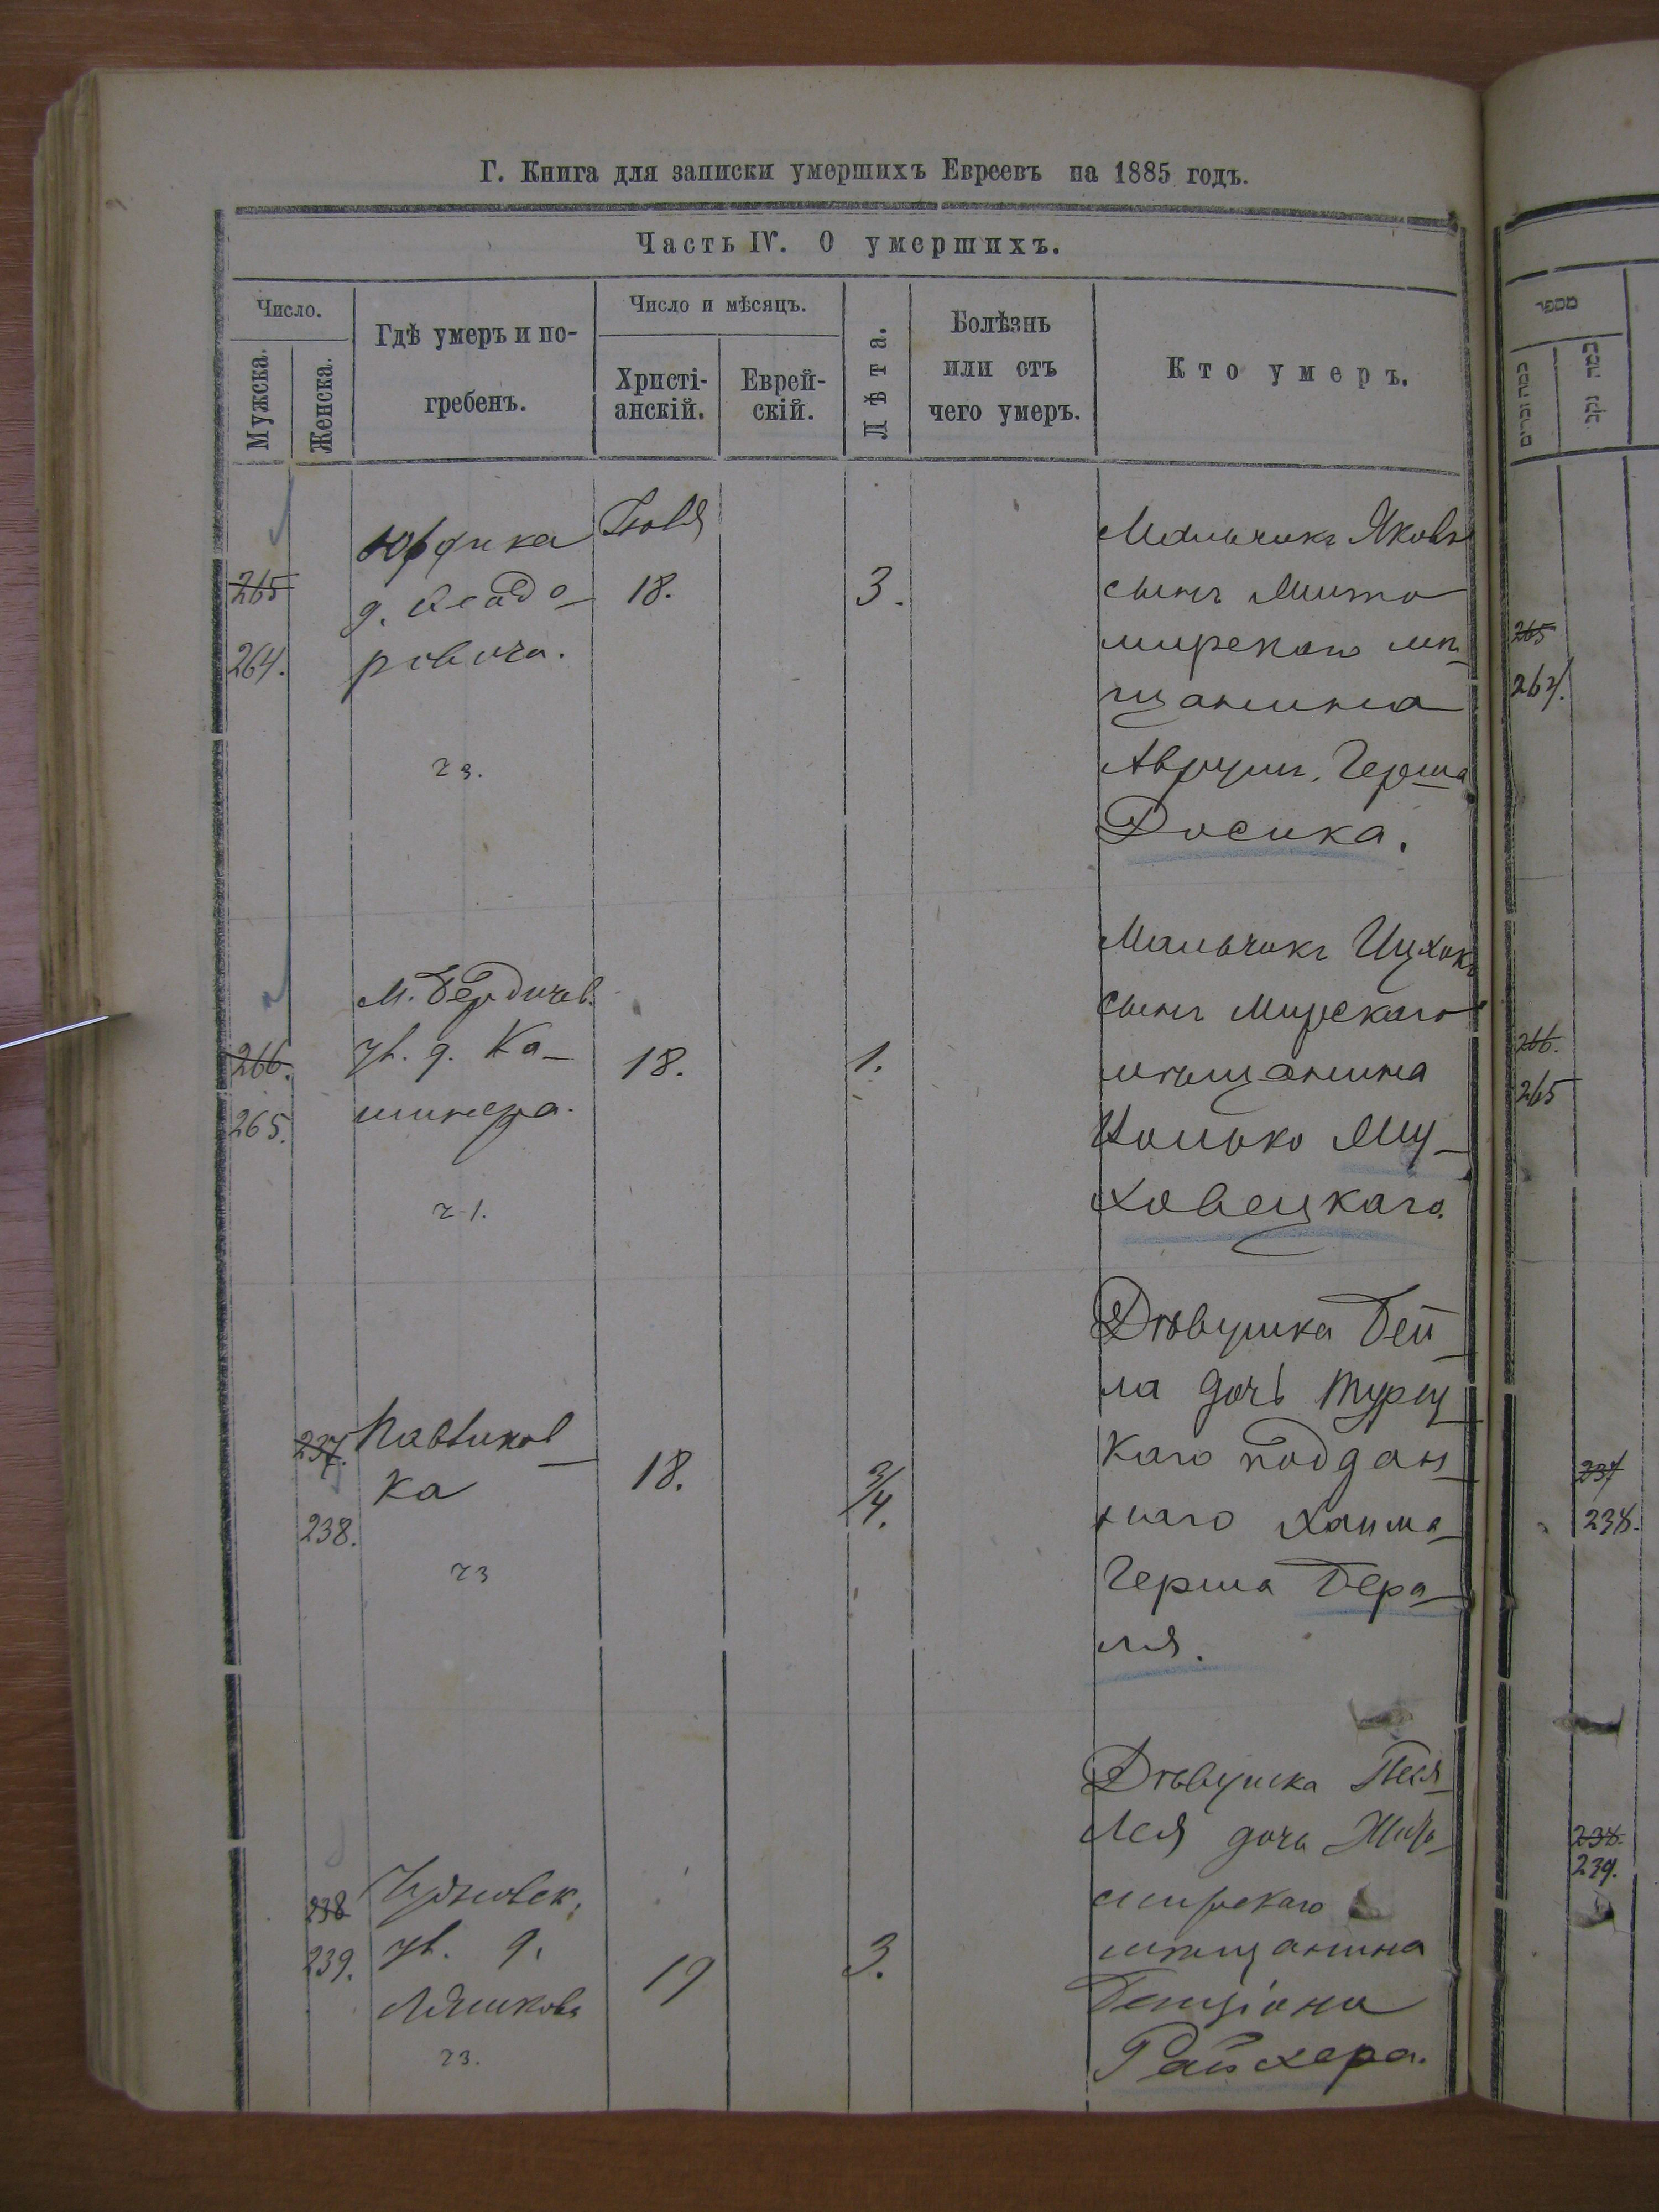 Г. Книга для записки умершихъ Евреевъ на 1885 годъ.
Часть IV. О умершихъ.
Число.
Мужска.
Женска.
Гдѣ умеръ и по-
гребенъ.
Число и мѣсяцъ.
Христі-
анскій.
Еврей-
скій.
Лѣта.
Болѣзнь
или отъ
чего умеръ.
Кто умеръ.
265
264.
Юрдика
д.
ровича.
ч3.
Іюля
18.
3.
Мальчикъ Яковъ
сынъ Жито
мирскаго мѣ
щанина
Аврумъ Герша
Досика.
266.
265.
М. Бердичев.
ул. д. Ка-
минера.
ч1.
18.
1.
Мальчикъ Ицхокъ
сынъ Мирскаго
мѣщанина
Ицхо-
ховецкаго.
237.
238.
Павликов
ка
ч3
18.
3/4.
Дѣвушка Бей
ла дочь Турец
каго поддан
наго Хаима
Герша Бера
ля.
238
239.
Чудновск.
ул. д.
Ляшкова
ч3.
19
3.
Дѣвушка Песя
Лея дочь Жито
мирскаго
мѣщанина
Бенціона
Райхера.
מספר
265
264.
266.
265
237
238.
238.
239.